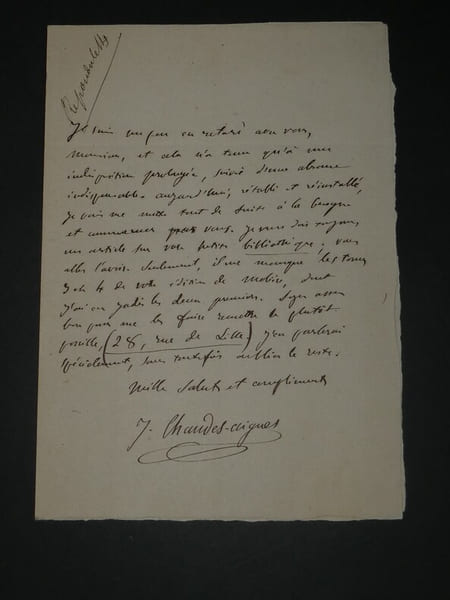 Répondu le 14
Je suis un peu en retard avec vous,
Monsieur, et cela n'a tenu qu'à une
indisposition prolongée, suivie d'une absence
indispensable. aujourd'hui, rétabli et réinstallé,
je vais me mettre tout de suite à la besogne
et commencer par vous. Je vous dois toujours
un article sur votre petite bibliothèque; vous
allez l'avoir. Seulement, il me manque les tomes
3 et 4 de votre édition de Molière, dont
j'ai eu jadis les deux premiers. Soyez assez
bon pour me les faire remettre le plutôt
possible, (28, rue de Lille.) j'en parlerai
spécialement, sans toutefois oublier le reste.
Mille saluts et compliments
J. Chaudes-aigues